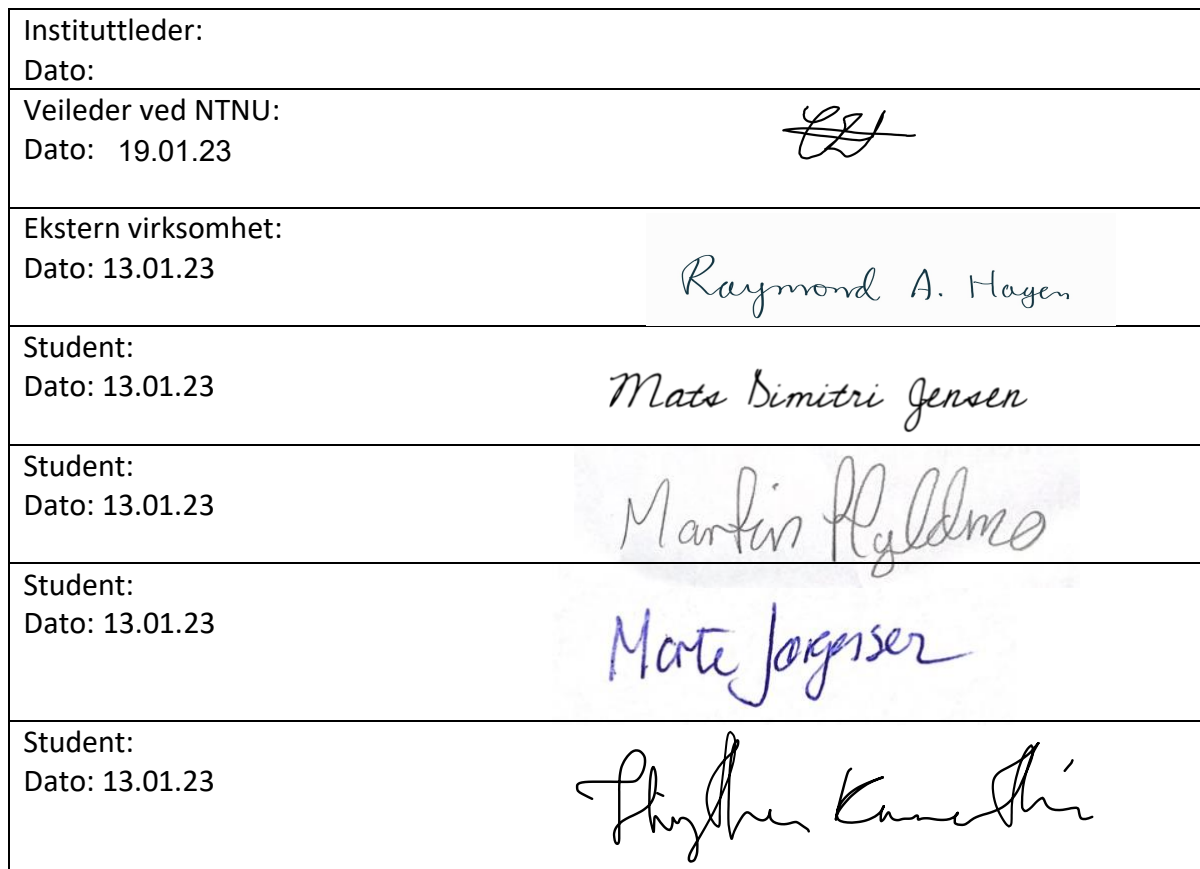 Instituttleder:
Dato:
Veileder ved NTNU:
Dato: 19.01.23
Ekstern virksomhet:
Dato: 13.01.23
Raymond A. Hagen
Student:
Dato: 13.01.23
Mats Dimitri Jensen
Student:
Dato: 13.01.23
Martin Hyldmo
Student:
Dato: 13.01.23
Marte Jørgensen
Student:
Dato: 13.01.23